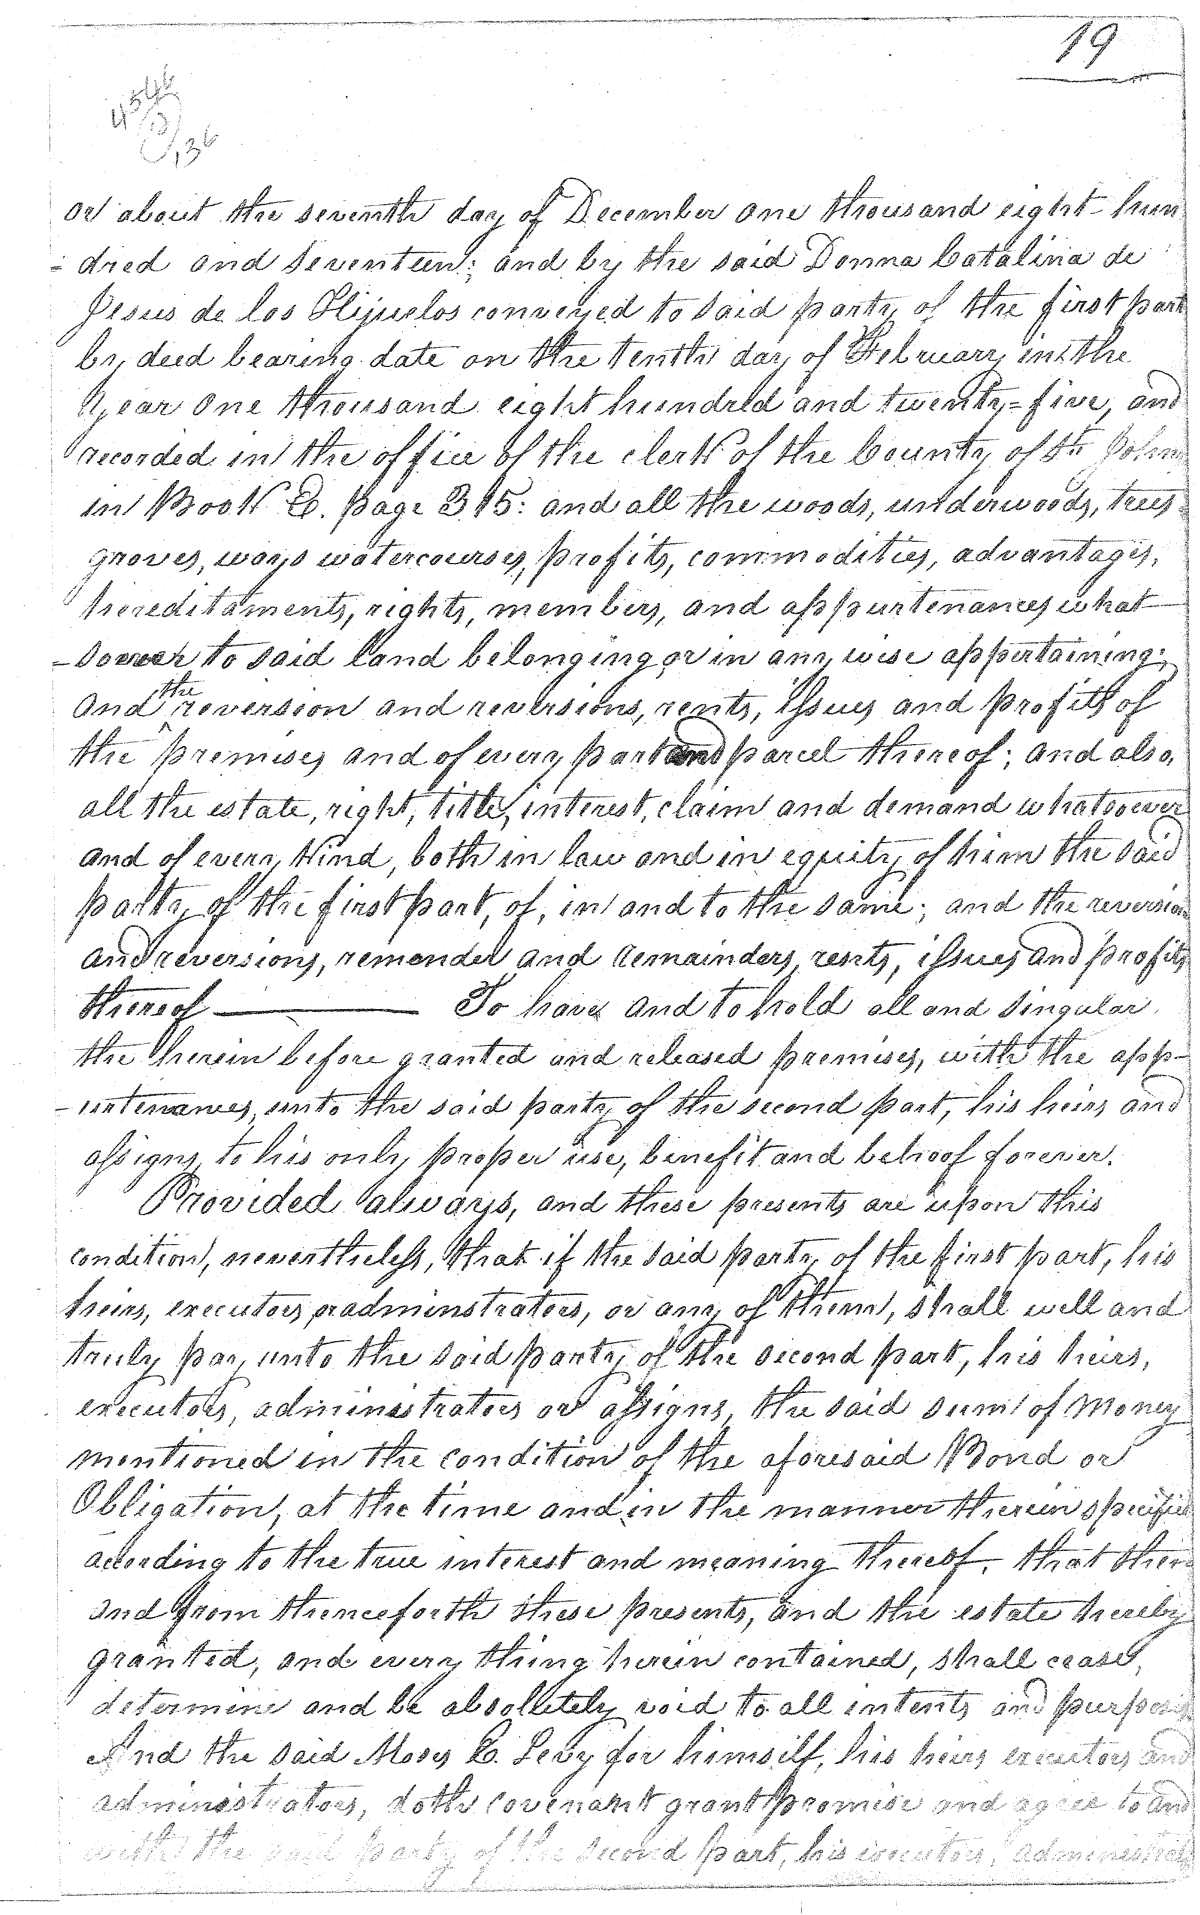 19
4546
136
or about the seventh day of December one thousand eight-hun
-dred and seventeen; and by the said Donna Catalina de
Jesus de los Hijuelos conveyed to said party of the first part
by deed bearing date on the tenth day of February in the
year one thousand eight hundred and twenty-five, and
recorded in the office of the clerk of the County of St Johns
in Book E. page 315: and all the woods, underwoods, trees
groves, ways watercourses, profits, commodities, advantages,
hereditaments, rights, members, and appurtenances what-
-soever to said land belonging or in any wise appertaining;
And the reversion and reversions, rents, issues and profits of
the premises and of every part and parcel thereof; and also,
all the estate, right, title, interest, claim and demand whatsoever
and of every kind, both in law and in equity of him the said
party of the first part, of, in and to the same; and the reversion
and reversions, remender and remainders, rests, issues and profits
thereof ——— To have and to hold all and singular
the herein before granted and released premises, with the app-
-urtenances, unto the said party of the second part, his heirs and
assigns, to his only proper use, benefit and behoof forever.
Provided always, and these presents are upon this
condition, nevertheless, that if the said party of the first part, his
heirs, executors, or adminstrators, or any of them, shall well and
truly pay unto the said party of the second part, his heirs,
executors, administrators or assigns, the said sum of Money
mentioned in the condition of the aforesaid Bond or
Obligation, at the time and in the manner therein specified
according to the true interest and meaning thereof, that then
and from thenceforth these presents, and the estate hereby
granted, and every thing herein contained, shall cease,
determine and be absolletely void to all intents and purposes
And the said Moses E. Levy for himself, his heirs executors and
administrators, doth covenant grant promise and agree to and
with the said party of the second part, his executors, administrat